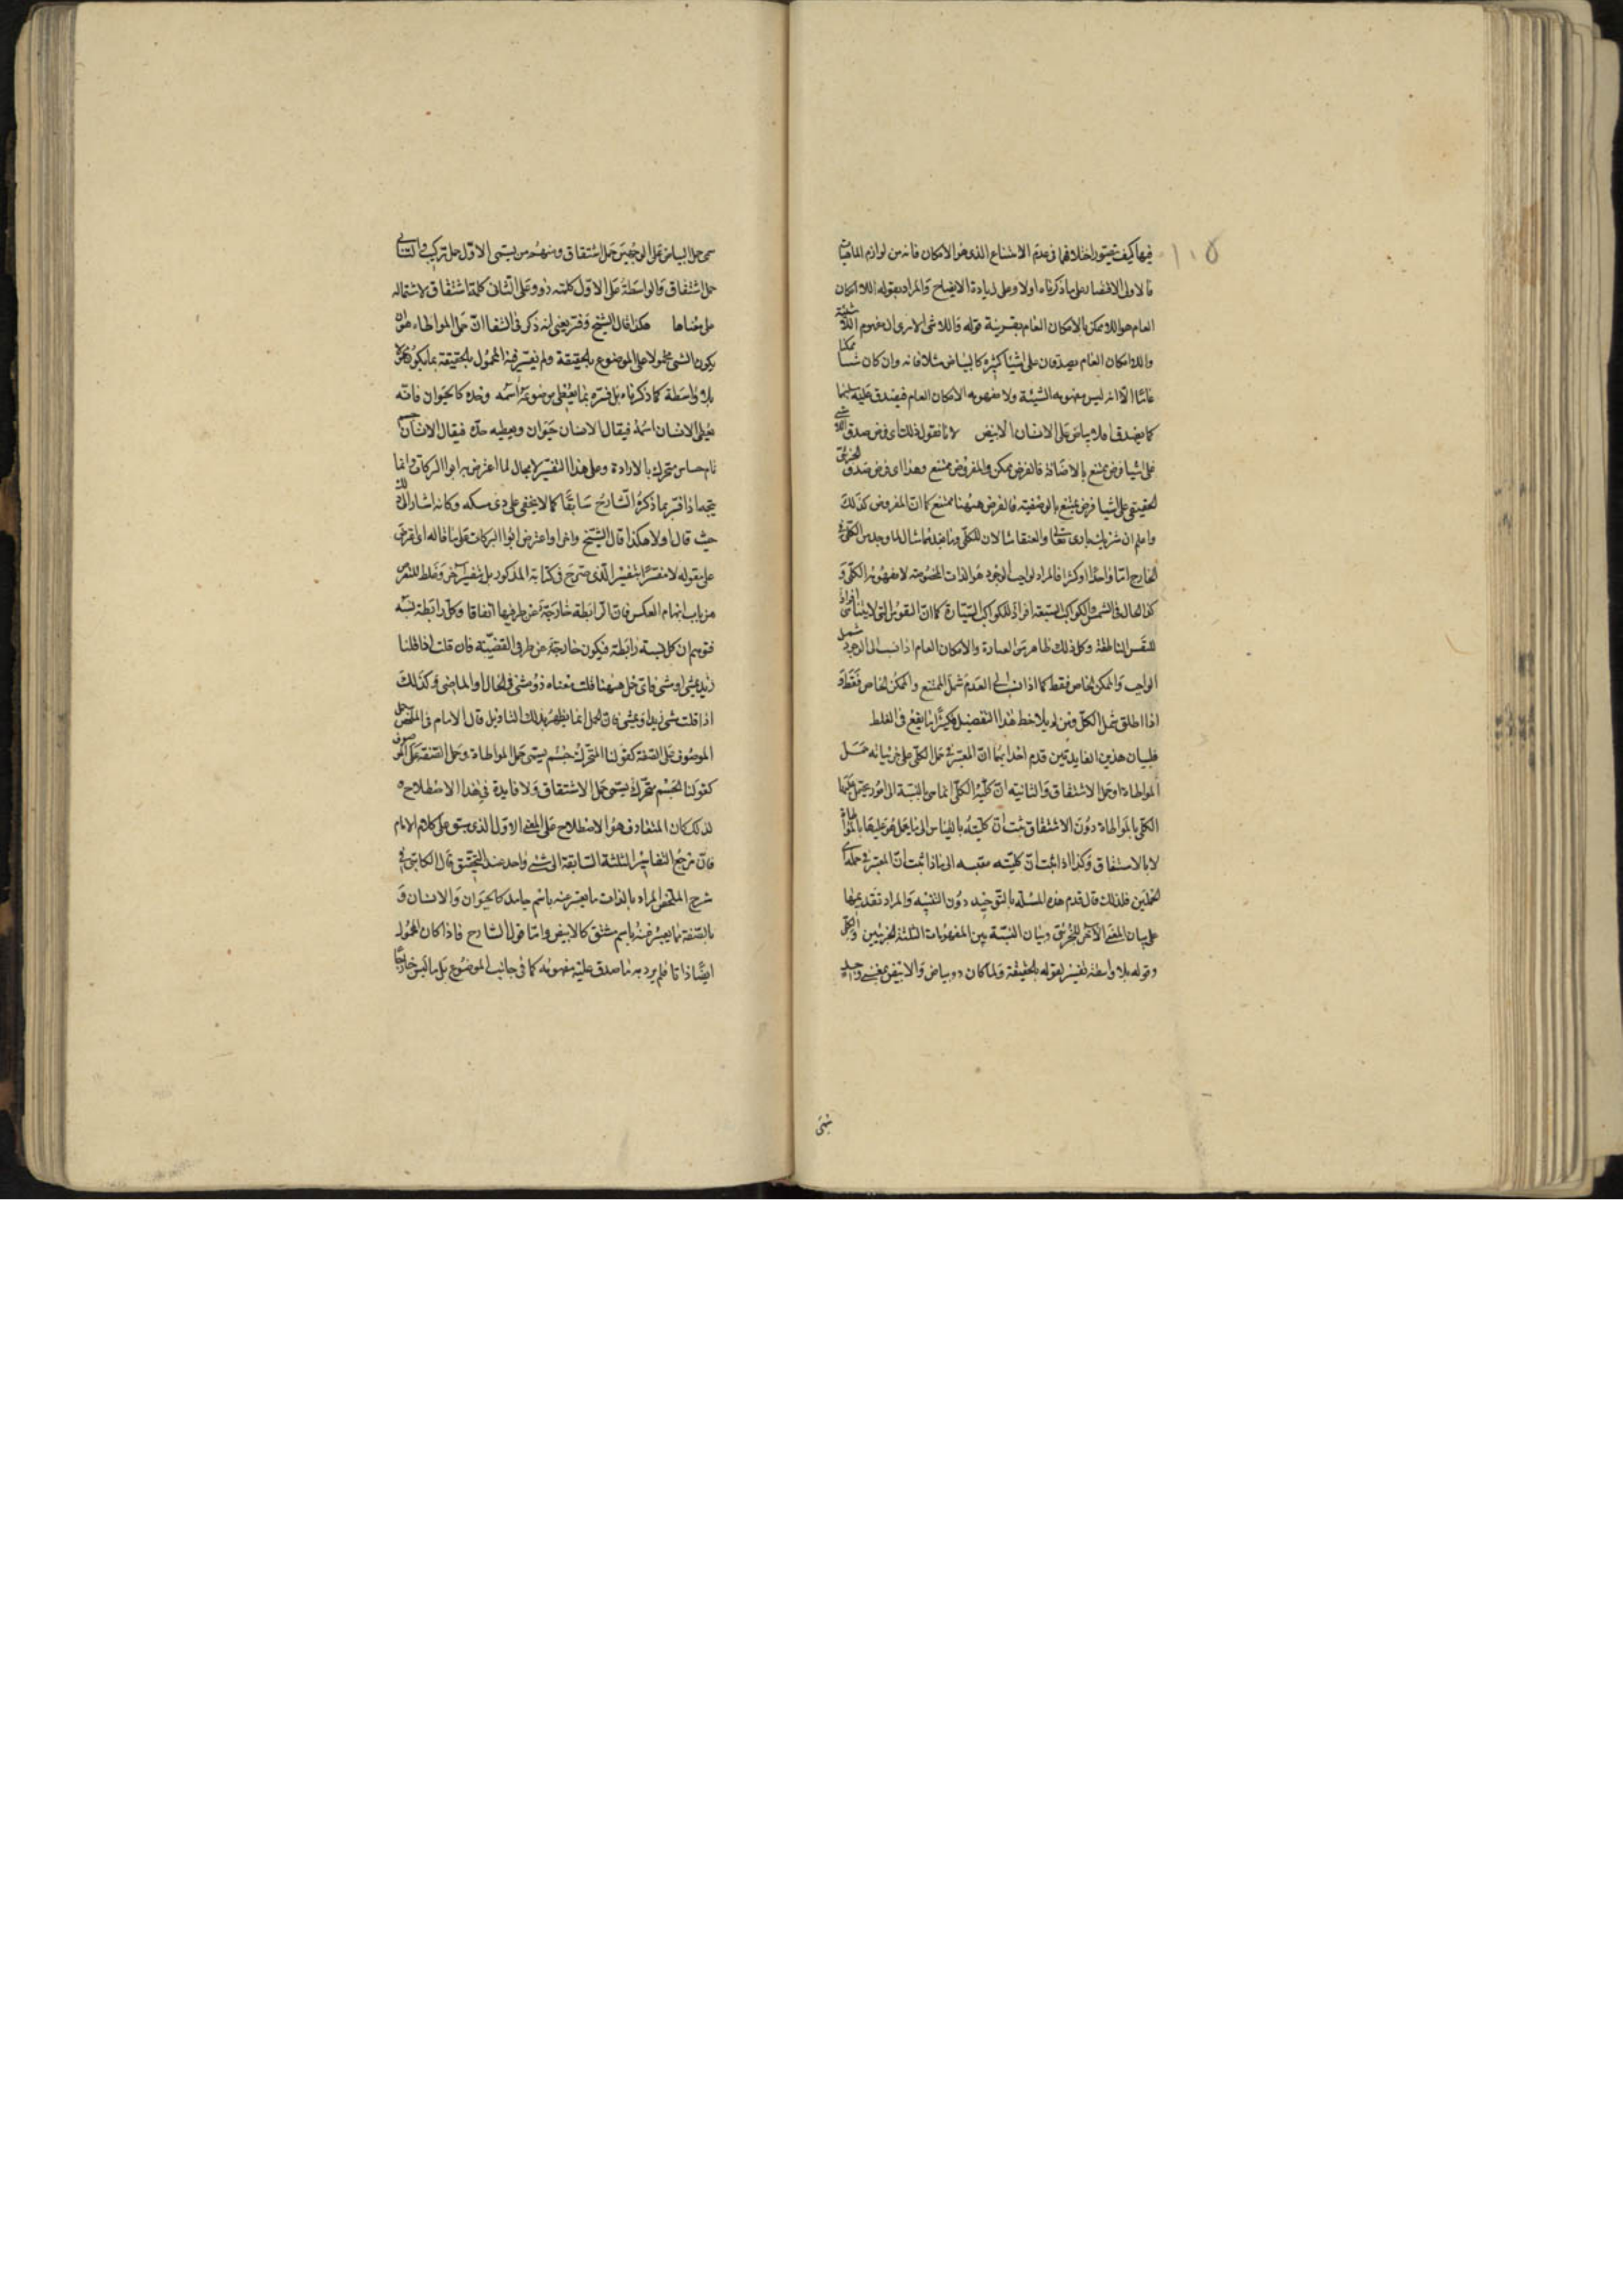 ١٠٥
فيها كيف يتصور اختلافهما في عدم الامتناع الذي هو الامكان فانه من لوازم الماهيات
فالاولى الاقتصار على ما ذكرناه اولا وعلى زيادة الايضاح والمراد بقوله اللا امكان
العام هو اللا ممكن بالامكان العام بقرينة قوله واللا شى لا يرى ان مفهوم اللا شيئية
واللا امكان العام يصدقان على اشيا كثيرة كالبياض مثلا فانه وان كان شيا ممكنا
عاما الا انه ليس مفهومه الشيئة ولا مفهومه الامكان العام فيصدق عليه سلبهما
كما يصدق اللا بياض على الانسان الابيض لانا نقول ذلك اى فرض صدق اللا شى
على اشيا فرض ممتنع بالاضافة فالفرض ممكن والمفروض ممتنع وهذا اى فرض صدق الجزئى
الحقيقى على اشيا فرض ممتنع بالوصفية فالفرض ههنا ممتنع كما ان المفروض كذلك
واعلم ان شريك البارى تعالى والعنقا مثالان للكلى وما بعدهما مثال لما وجد من الكلى فى
الخارج اما واحدا او كثيرا فالمراد بواجب الوجود هو الذات المخصوصة لا مفهومه الكلى و
كذا الحال فى الشمس والكواكب السبعة افراد للكواكب السيارة كما ان النفوس التى لا يتناهى افراد
للنفس الناطقة وكل ذلك ظاهر من العبارة والامكان العام اذا نسب الى الوجود شمل
الواجب والممكن الخاص فقط كما اذا نسب الى العدم شمل الممتنع والممكن الخاص فقط و
اذا اطلق شمل الكل ومن لم يلاحظ هذا التفصيل فكثيرا ما يقع فى الغلط
فلبيان هذين الفايدتين قدم احدايهما ان المعتبر فى حمل الكلى على جزئياته حمل
المواطاة او حمل الاشتقاق والثانية ان كلية الكلى انما هى بالنسبة الى امور يحمل عليها
الكلى بالمواطاة دون الاشتقاق ثبت ان كليته بالقياس الى ما يحمل هو عليها بالمواطاة
لا بالاشتقاق وكذا اذا ثبت ان كليته مقيسه الى ماذا ثبت ان المعتبر فى حمله اى
الحملين فلذلك قال قدم هذه المسئلة بالتوحيد دون التثنية والمراد تقديمها
على بيان المعنى الآخر للجزئى وبيان النسبة بين المفهومات الثلثة الجزئيين والكلى
وقوله بلا واسطة تفسير لقوله بالحقيقة ولما كان ذو بياض والابيض بمعنى واحد
سمى حمل البياض على الوجهين حمل اشتقاق ومنهم من يسمى الاول حمل تركيب والثانى
حمل اشتقاق والواسطة على الاول كلمة ذو وعلى الثانى كلمة اشتقاق لاشتماله
على معناها هكذا قال الشيخ وفسر يعنى انه ذكر فى الشفا ان حمل المواطاة هو ان
يكون الشى محمولا على الموضوع بالحقيقة ولم يفسر فيه المحمول بالحقيقة بما يكون محمولا
بلا واسطة كما ذكرناه بل فسره بما يعطى موضوعه اسمه وحده كالحيوان فانه
يعطى الانسان اسمه فيقال الانسان حيوان ويعطيه حده فيقال الانسان جسم
نام حساس متحرك بالارادة وعلى هذا التفسير لا مجال لما اعترض به ابو البركات وانما
يتجه اذا فسر بما ذكره الشارح سابقا كما لا يخفى على ذى مسكة وكانه اشار الى ذلك
حيث قال اولا هكذا قال الشيخ واعترض ابو البركات على ما قاله اى اعترض
على قوله لا مفسرا بتفسير الذى صرح فى كتابه المذكور بل بتفسير آخر وغلط المعترض
من باب ايهام العكس فان الرابطة خارجة عن طرفيها اتفاقا وكل رابطة نسبة
فتوهم ان كل نسبة رابطة فيكون خارجة عن طرفى القضية فان قلت اذا قلنا
زيد يمشى او مشى فاى حمل ههنا قلت معناه ذو مشى فى الحال او الماضى وكذلك
اذا قلت مشى زيد او يمشى فان الحمل انما يظهر بذلك التاويل قال الامام فى الملخص حمل
الموصوف على الصفة كقولنا المتحرك جسم يسمى حمل المواطاة وحمل الصفة على الموصوف
كقولنا الجسم متحرك يسمى حمل الاشتقاق ولا فايدة فى هذا الاصطلاح
لذلك كان المتعارف هو الاصطلاح على المعنى الاول الذى سبق على كلام الامام
فان مرجع التفاسير الثلثة السابقة الى شى واحد عند التحقيق قال الكاتبى فى
شرح الملخص المراد بالذات ما يعبر عنه باسم جامد كالحيوان والانسان و
بالصفة ما يعبر عنه باسم مشتق كالابيض واما قول الشارح فاذا كان المحمول
ايضا ذاتا فلم يرد به ما صدق عليه مفهومه كما فى جانب الموضوع بل ما ليس خارجا
سمى